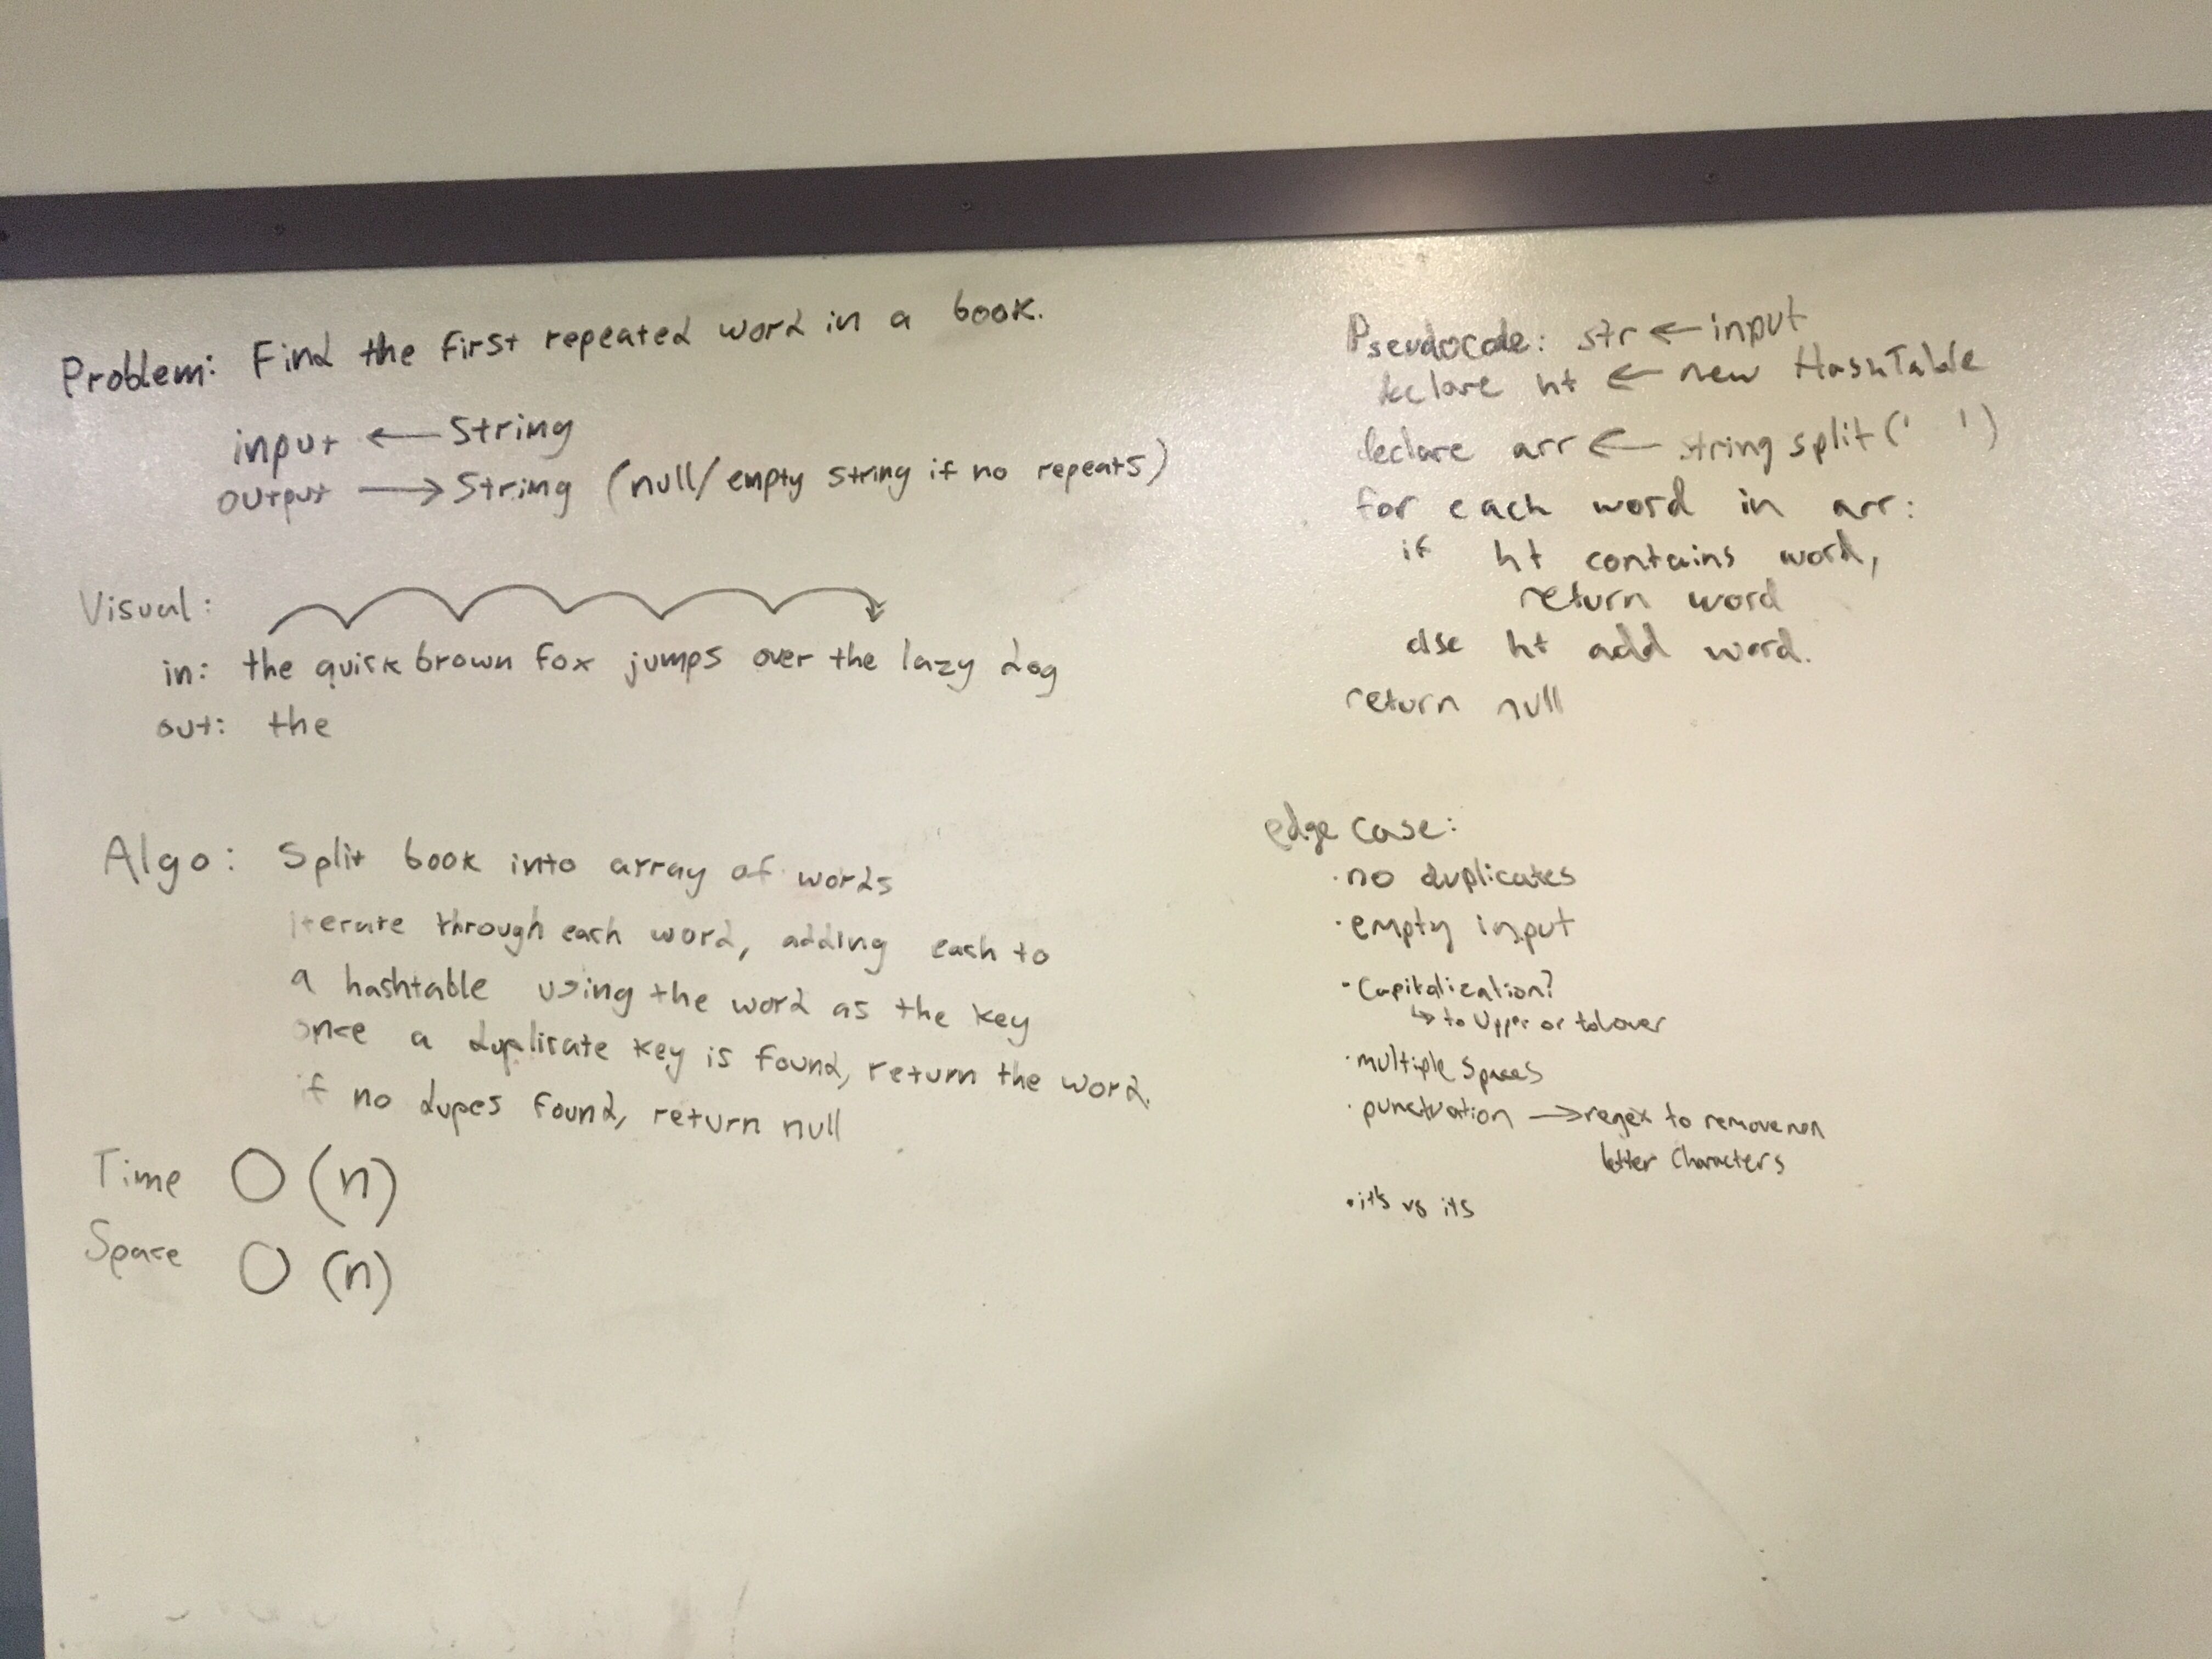 Problem: Find the first repeated word in a book.
input ← String
output → String (null/empty string if no repeats)
Visual:
in: the quick brown fox jumps over the lazy dog
out: the
Algo: Split book into array of words
iterate through each word, adding each to
a hashtable using the word as the key
once a duplicate key is found, return the word.
if no dupes found, return null
Time O(n)
Space O(n)
Pseudocode: str ← input
declare ht ← new HashTable
declare arr ← string split(' ')
for each word in arr:
if ht contains word,
return word
else ht add word.
return null
edge case:
· no duplicates
· empty input
· Capitalization?
↳ to Upper or toLower
· multiple spaces
· punctuation → regex to remove non
letter characters
· it's vs its